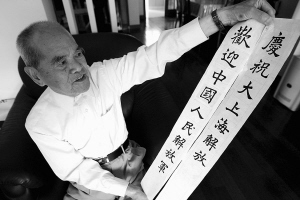 慶祝大上海解放
歡迎中國人民解放軍